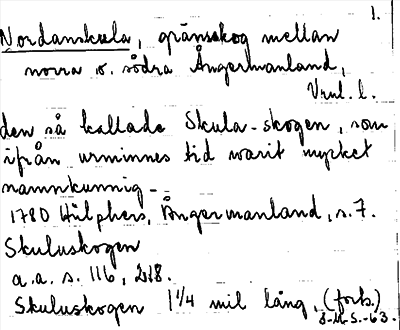 1.
Nordanskula, gränsskog mellan
norra o. södra Ångermanland,
den så kallade Skula-skogen, som
ifrån urminnes tid warit mycket
namnkunnig -
1780 Hülphers, Ångermanland, s. 7.
Skuluskogen
a.a. s. 116, 218.
Skuluskogen 1 1/4 mil lång, (forts.)
J-M-S.-63.